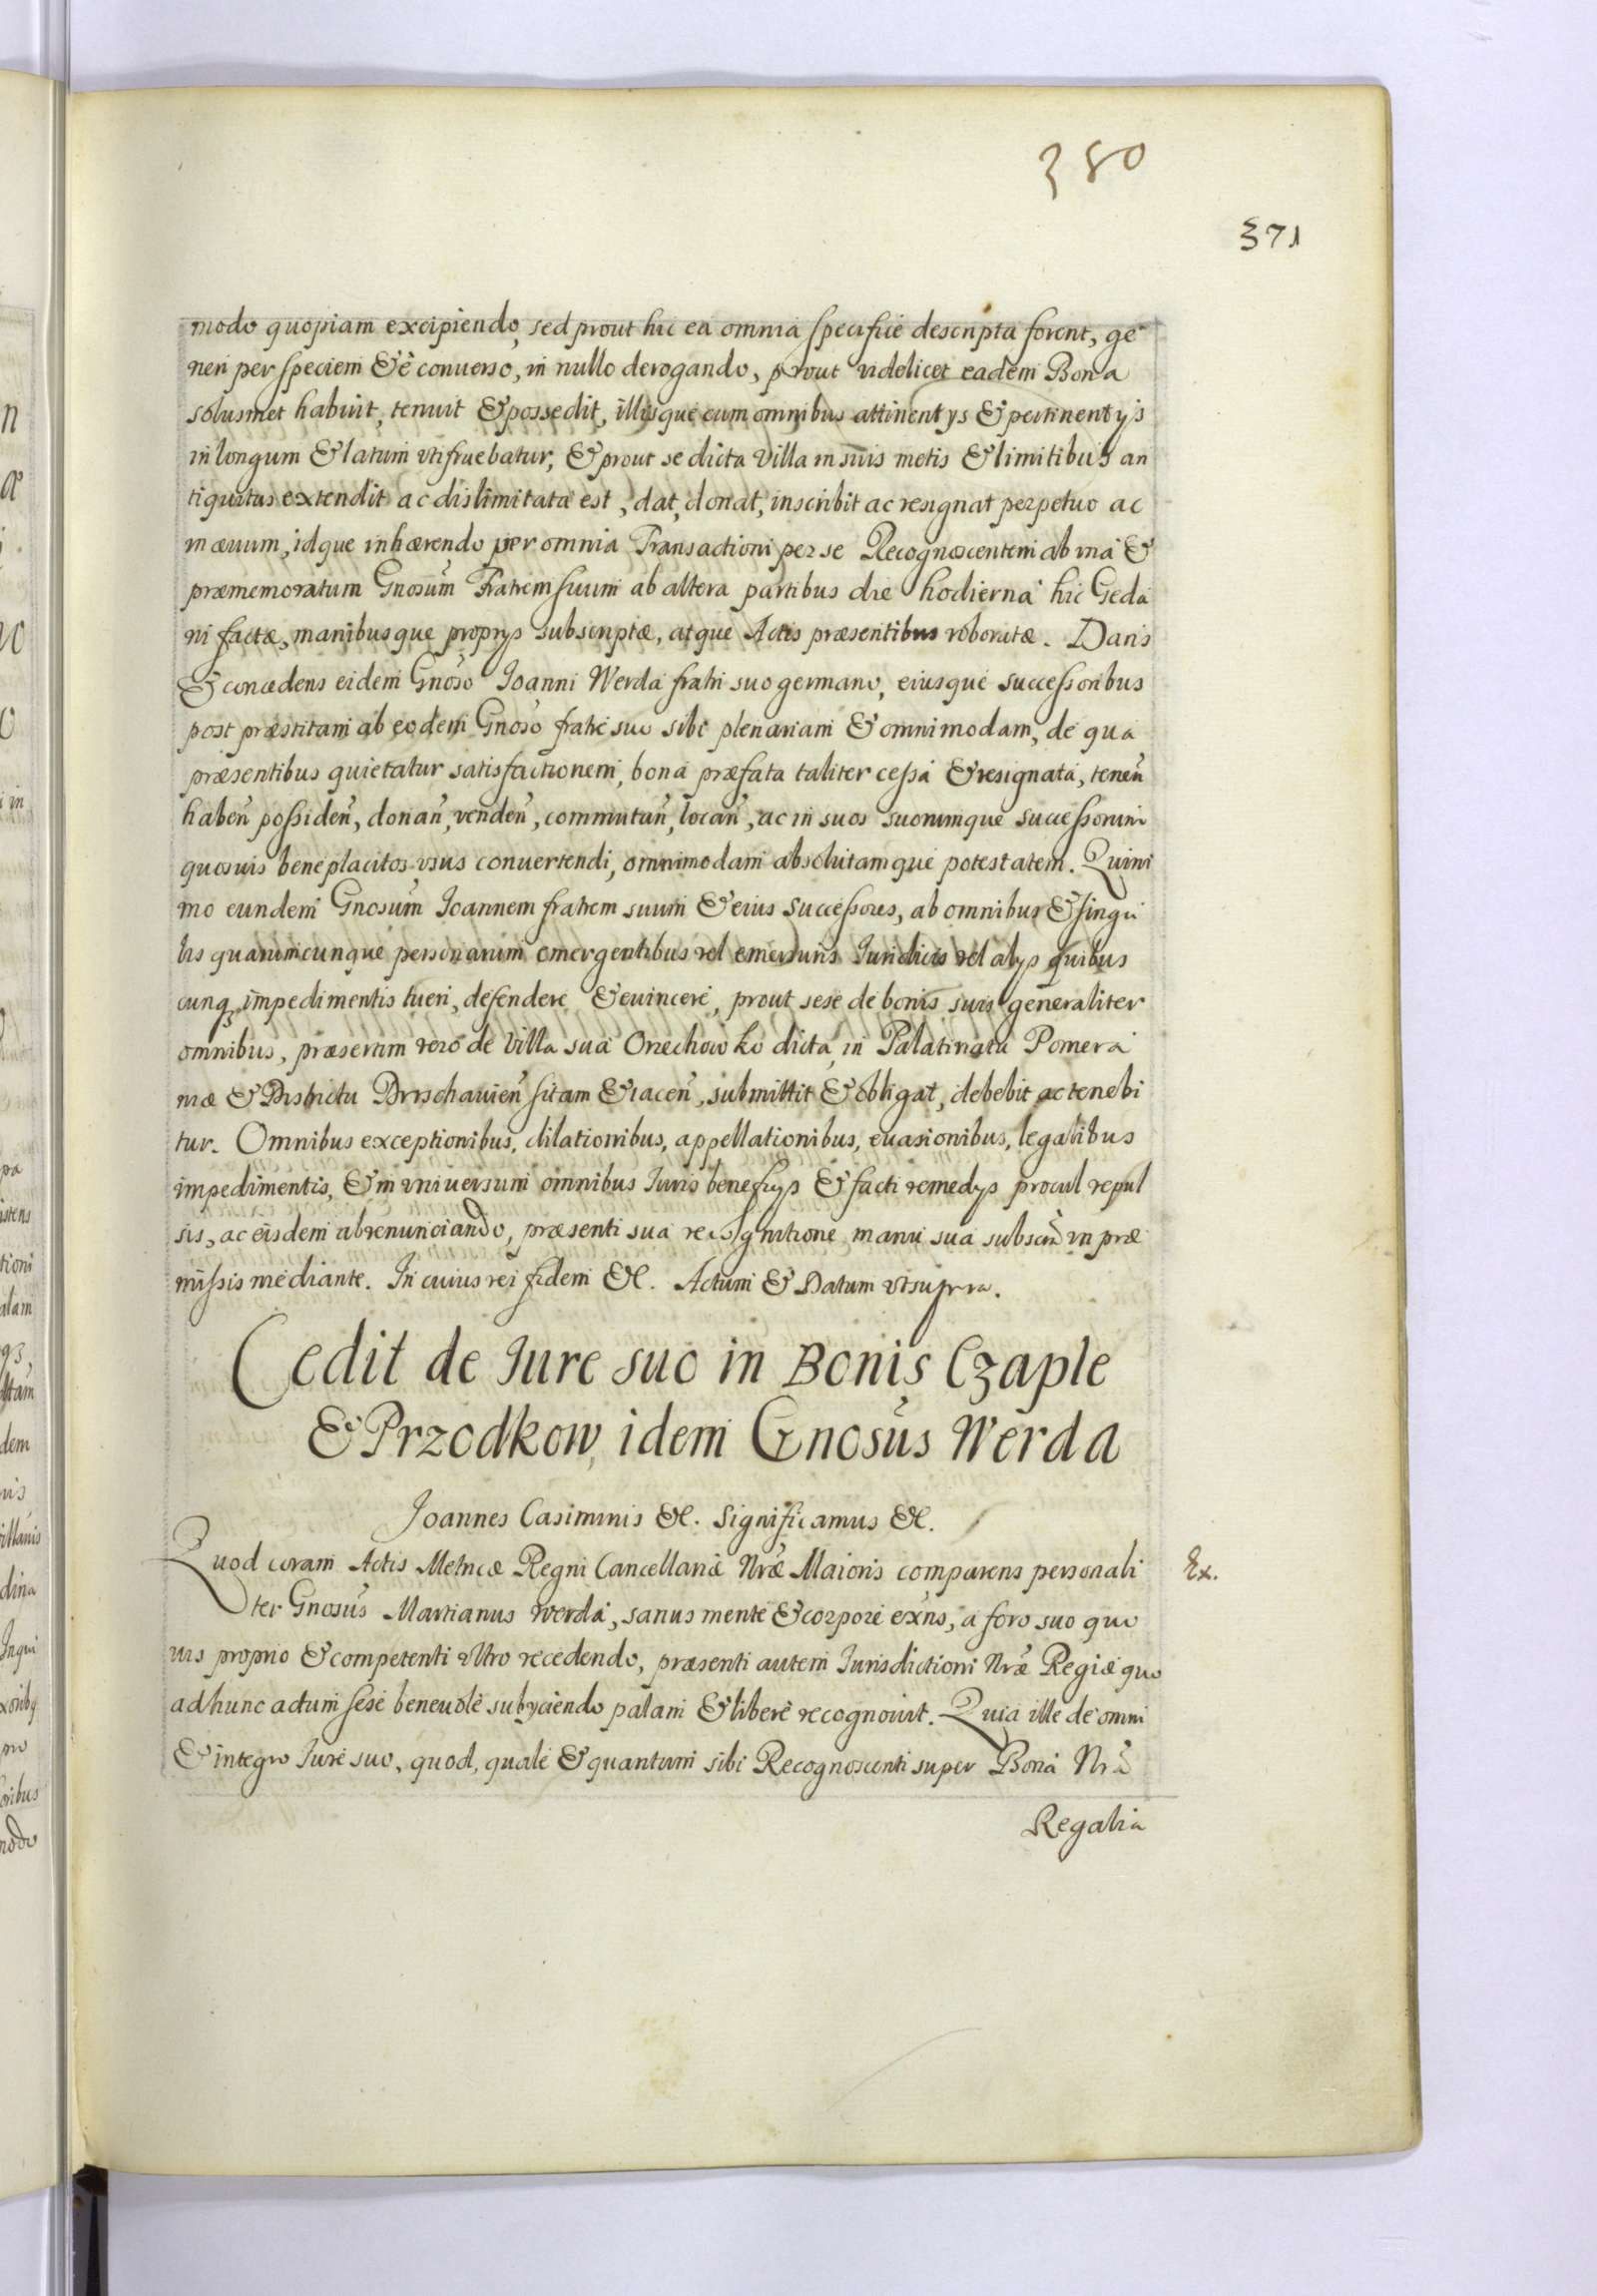 380
371
modo quopiam excipiendo, sed prout hic ea omnia specifice descripta forent, ge
neri per speciem & è conuerso, in nullo derogando, prout videlicet eadem Bona
solusmet habuit, tenuit & possedit, illisque cum omnibus attinentys & pertinentys
in longum & latum vtifruebatur, & prout se dicta Villa in suis metis & limitibus an
tiquitus extendit ac dislimitata est, dat, donat, inscribit ac resignat perpetuo ac
in æuum, idque inhærendo per omnia Transactioni per se Recognoscentem ab vna &
præmemoratum Gnosum Fratrem suum ab altera partibus die hodierna hic Geda
ni factæ, manibusque proprys subscriptæ, atque Actis præsentibus roboratæ. Dans
& concedens eidem Gnoso Joanni Werda fratri suo germano, eiusque successoribus
post præstitam ab eodem Gnoso fratre suo sibi plenariam & omnimodam, de qua
præsentibus quietatur satisfactionem, bona præfata taliter cessa & resignata, tenen
haben possiden, donan, venden, commutan, locan, ac in suos suorumque successorum
quosuis beneplacitos vsus conuertendi, omnimodam absolutamque potestatem. Quini
mo eundem Gnosum Joannem fratrem suum & eius Successores, ab omnibus & singu
lis quarumcunque personarum emergentibus vel emersuris Juridicis vel alys quibus
cunq impedimentis tueri, defendere & euincere, prout sese de bonis suis generaliter
omnibus, præsertim vero de Villa sua Orzechowko dicta in Palatinatu Pomera
niæ & Districtu Dirschauien sitam & iacen, submittit & obligat, debebit ac tenebi
tur. Omnibus exceptionibus, dilationibus, appellationibus, euasionibus, legalibus
impedimentis, & in vniuersum omnibus Juris beneficys & facti remedys procul repul
sis, ac eisdem abrenunciando, præsenti sua resignatione manu sua subscr in præ
missis mediante. In cuius rei fidem &c. Actum & Datum vt supra.
Cedit de Jure suo in Bonis Czaple
& Przodkow, idem Gnosus Werda
Joannes Casimirus &c. Significamus &c.
Quod coram Actis Metricæ Regni Cancellariæ Nræ Maioris comparens personali
ter Gnosus Martianus Werda, sanus mente & corpore exns, a foro suo quo
uis proprio & competenti vltro recedendo, præsenti autem Jurisdictioni Nræ Regiæ quo
ad hunc actum sese beneuole subyciendo palam & libere recognouit. Quia ille de omni
& integro Jure suo, quod, quale & quantum sibi Recognoscenti super Bona Nra
Ex.
Regalia